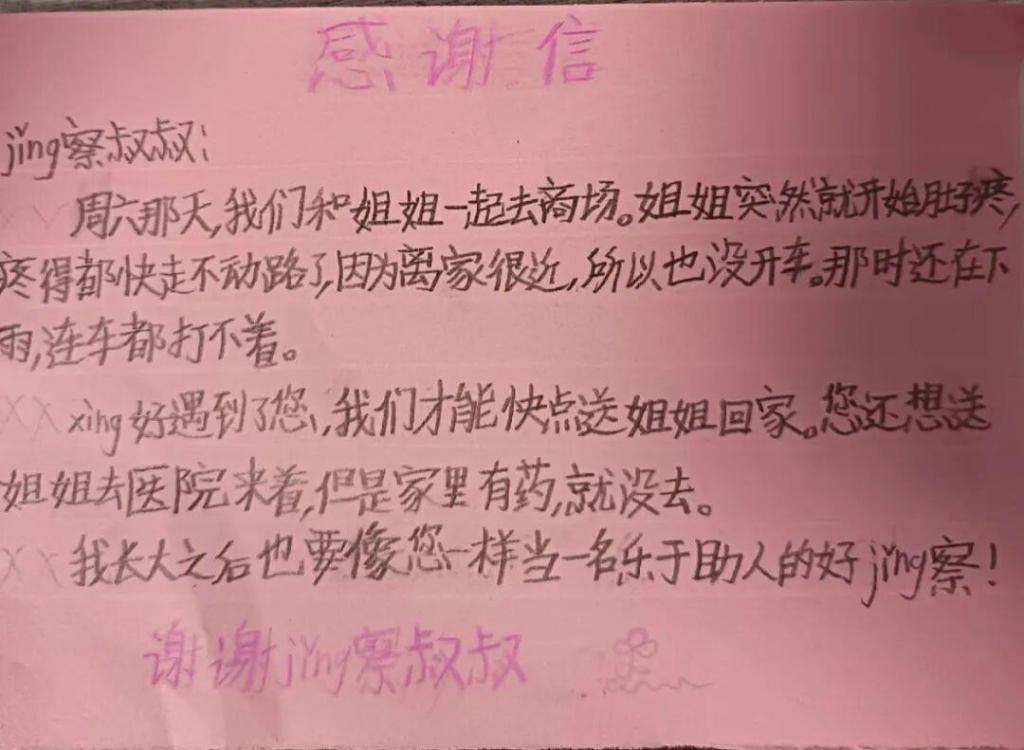 感谢信
jǐng察叔叔：
周六那天，我们和姐姐一起去商场。姐姐突然就开始肚子疼，
疼得都快走不动路了，因为离家很近，所以也没开车。那时还在下
雨，连车都打不着。
xìng好遇到了您，我们才能快点送姐姐回家。您还想送
姐姐去医院来着，但是家里有药，就没去。
我长大之后也要像您一样当一名乐于助人的好jǐng察！
谢谢jǐng察叔叔